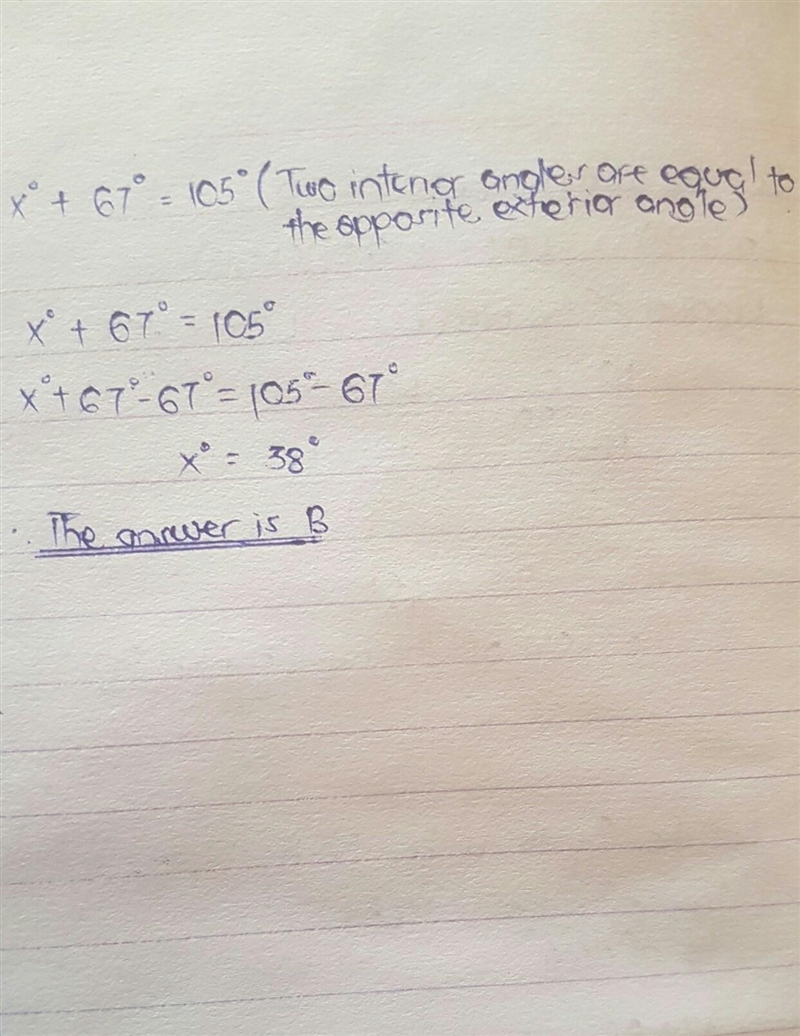 x° + 67° = 105° (Two interior angles are equal to
the opposite exterior angle)
x° + 67° = 105°
x° + 67° - 67° = 105° - 67°
x° = 38°
∴ The answer is B